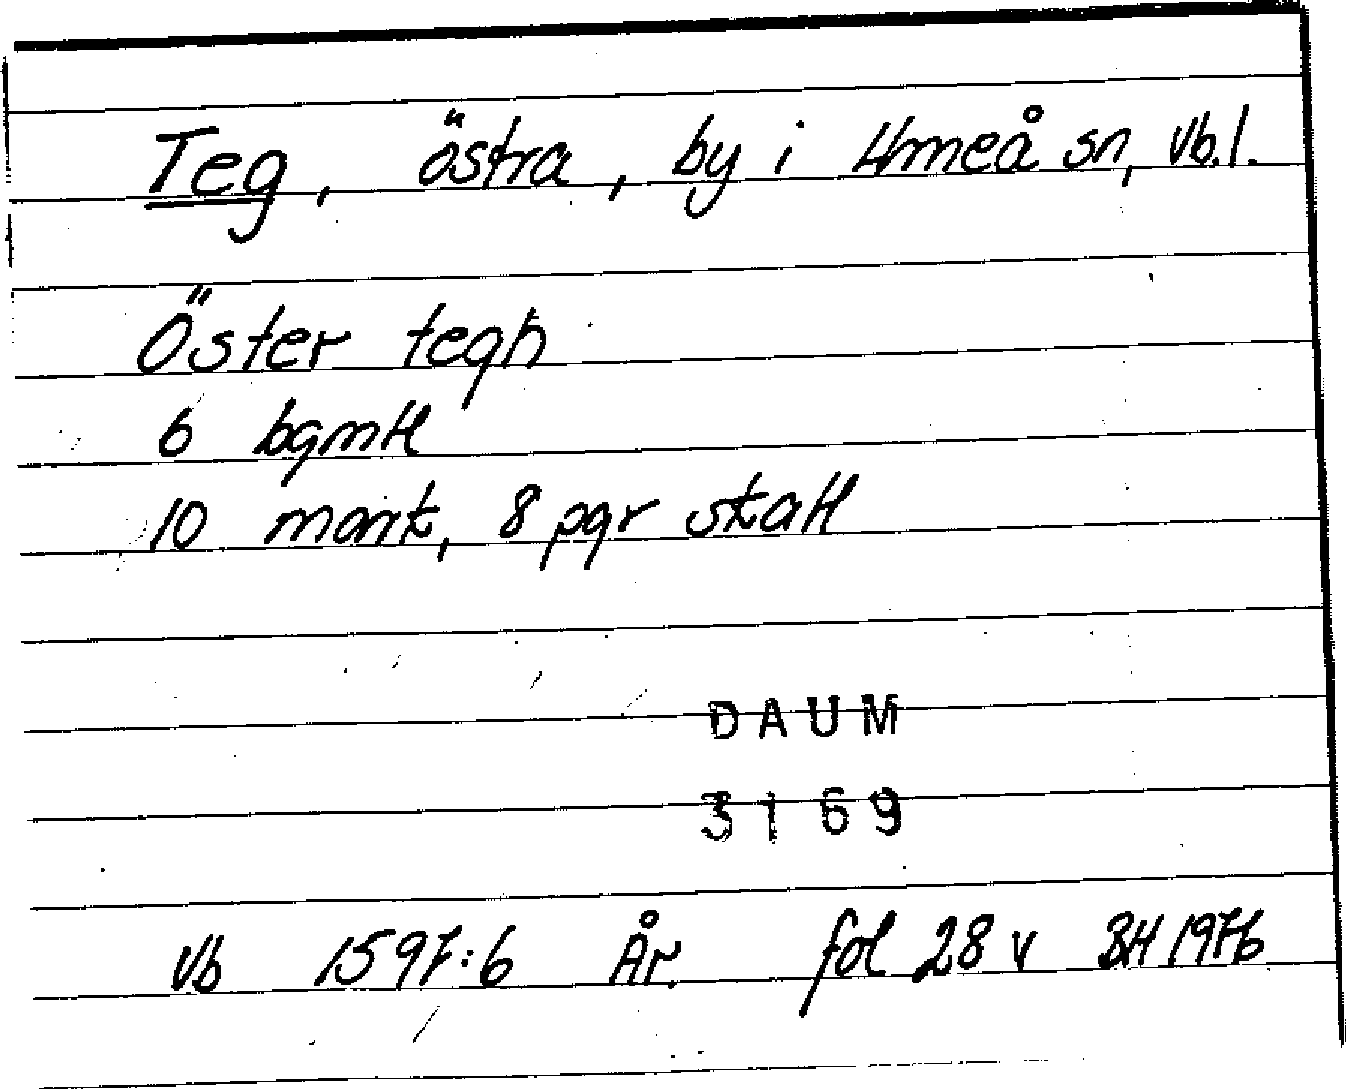 Teg, östra, by i Umeå sn, Vb.l.
Öster tegh
6 bgmtl
10 mark, 8 pgr skatt
DAUM
3169
Vb 1597:6 År. fol 28 v BH 1976